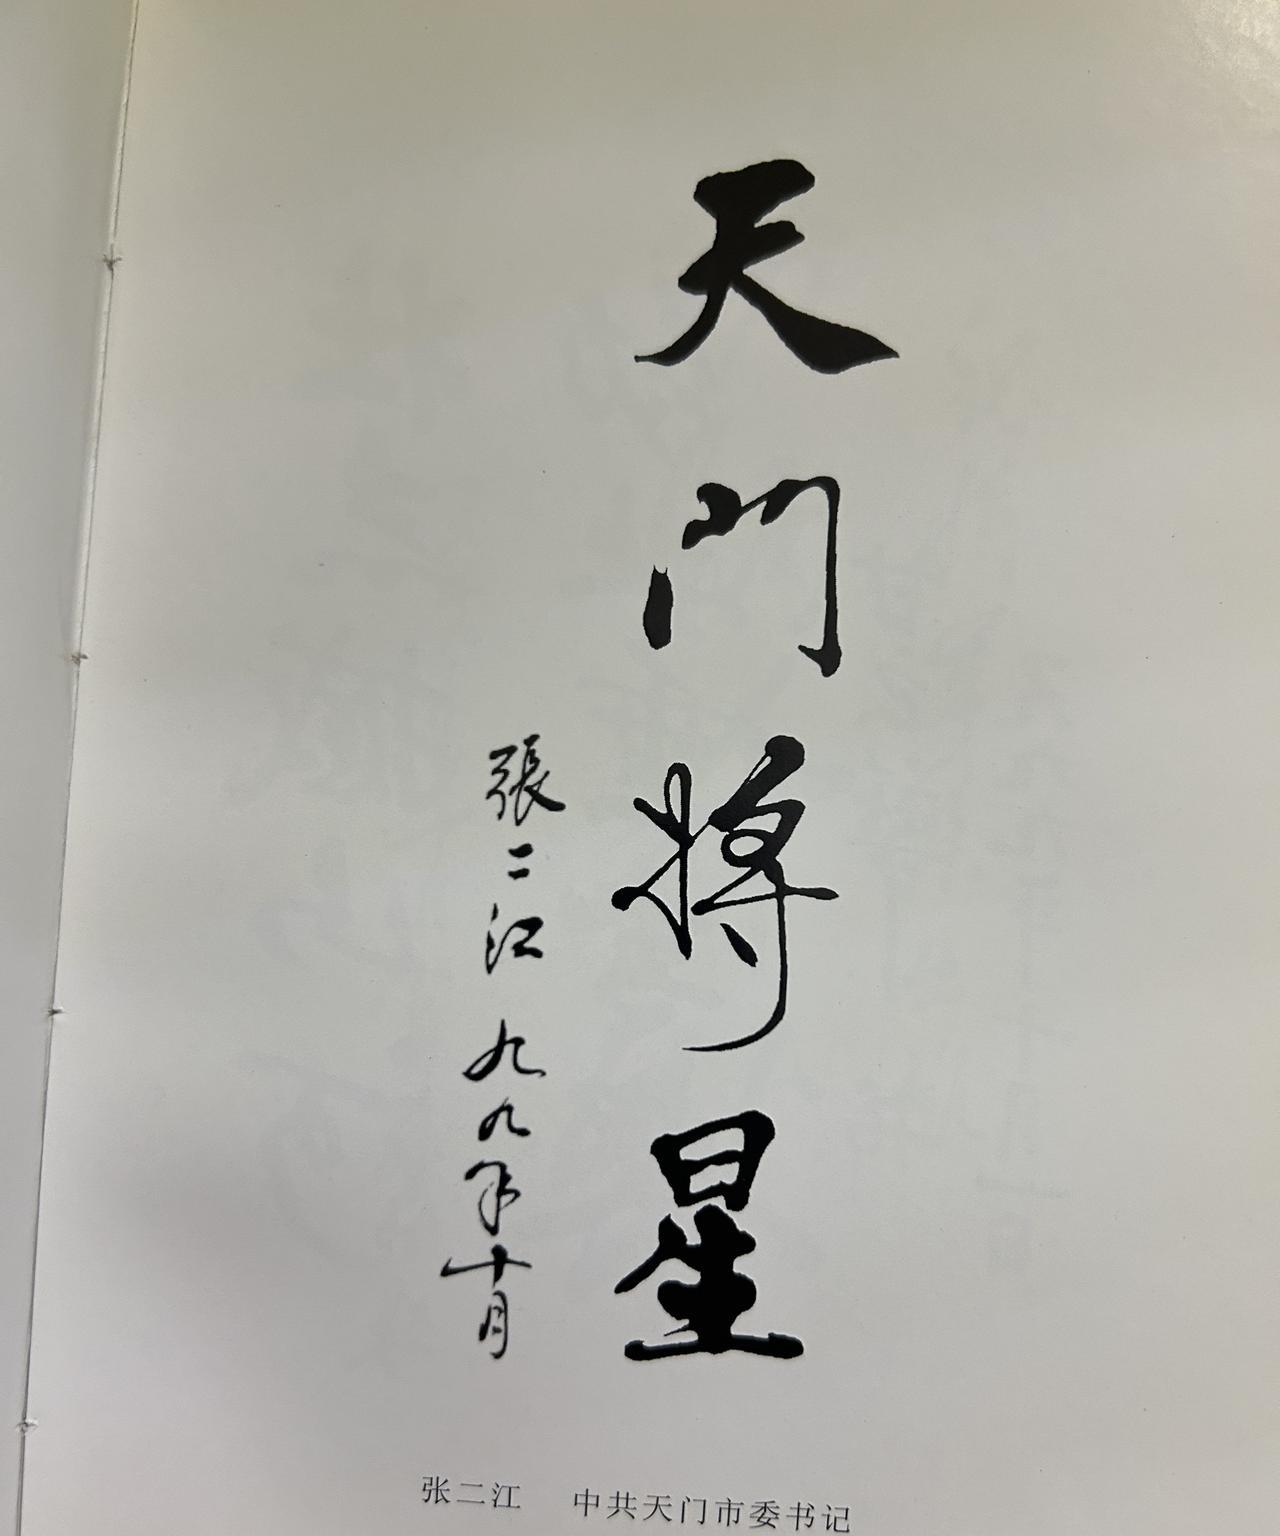 天门将星
張二江 九九年十月
张二江 中共天门市委书记